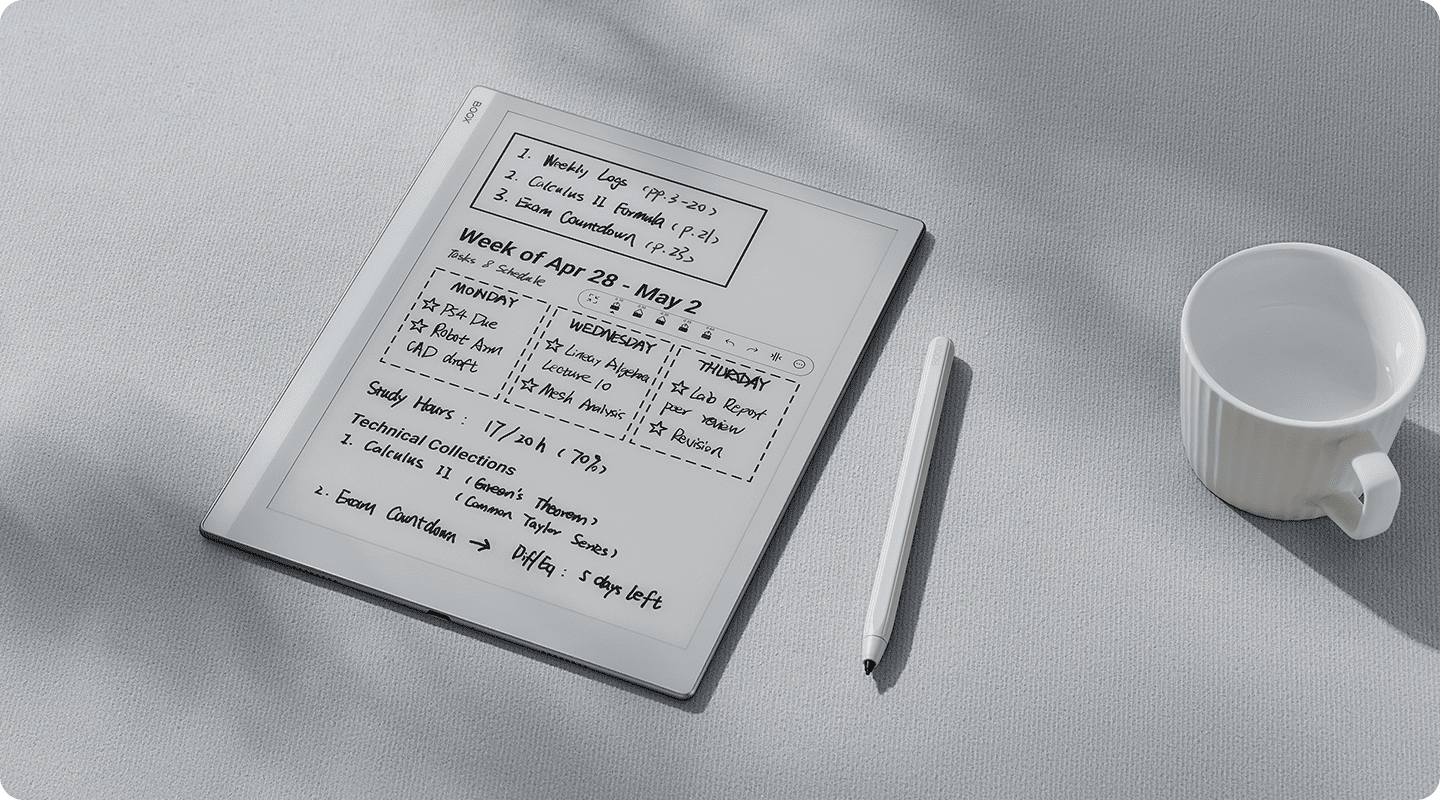 BOOX
1. Weekly Logs (pp.3-20)
2. Calculus II Formula (p.21)
3. Exam Countdown (p.23)
Week of Apr 28 - May 2
Tasks & Schedule
MONDAY
☆ PS4 Due
☆ Robot Arm
CAD draft
WEDNESDAY
☆ Linear Algebra
Lecture 10
☆ Mesh Analysis
THURSDAY
☆ Lab Report
peer review
☆ Revision
Study Hours : 17/20h (70%)
Technical Collections
1. Calculus II (Green's Theorem)
(Common Taylor Series)
2. Exam Countdown → Diff/Eq : 5 days left